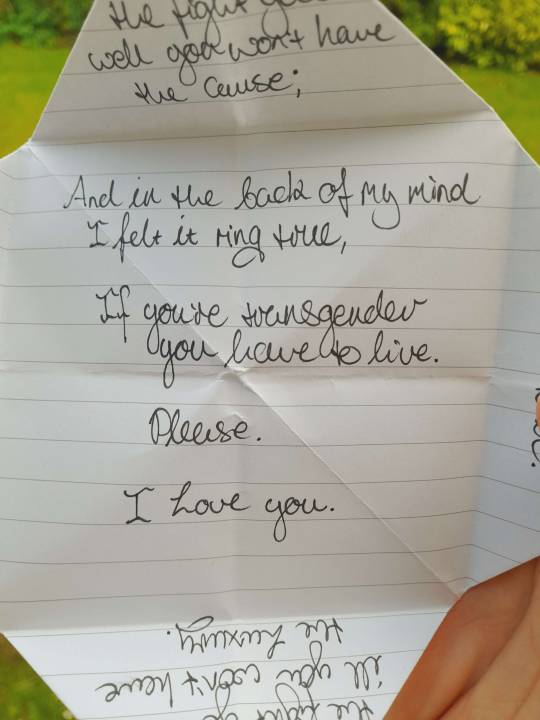 the fight
well you won't have
the cause;
And in the back of my mind
I felt it ring true,
If you're transgender
you have to live.
Please.
I Love you.
the fight
ill you won't have
the luxury.